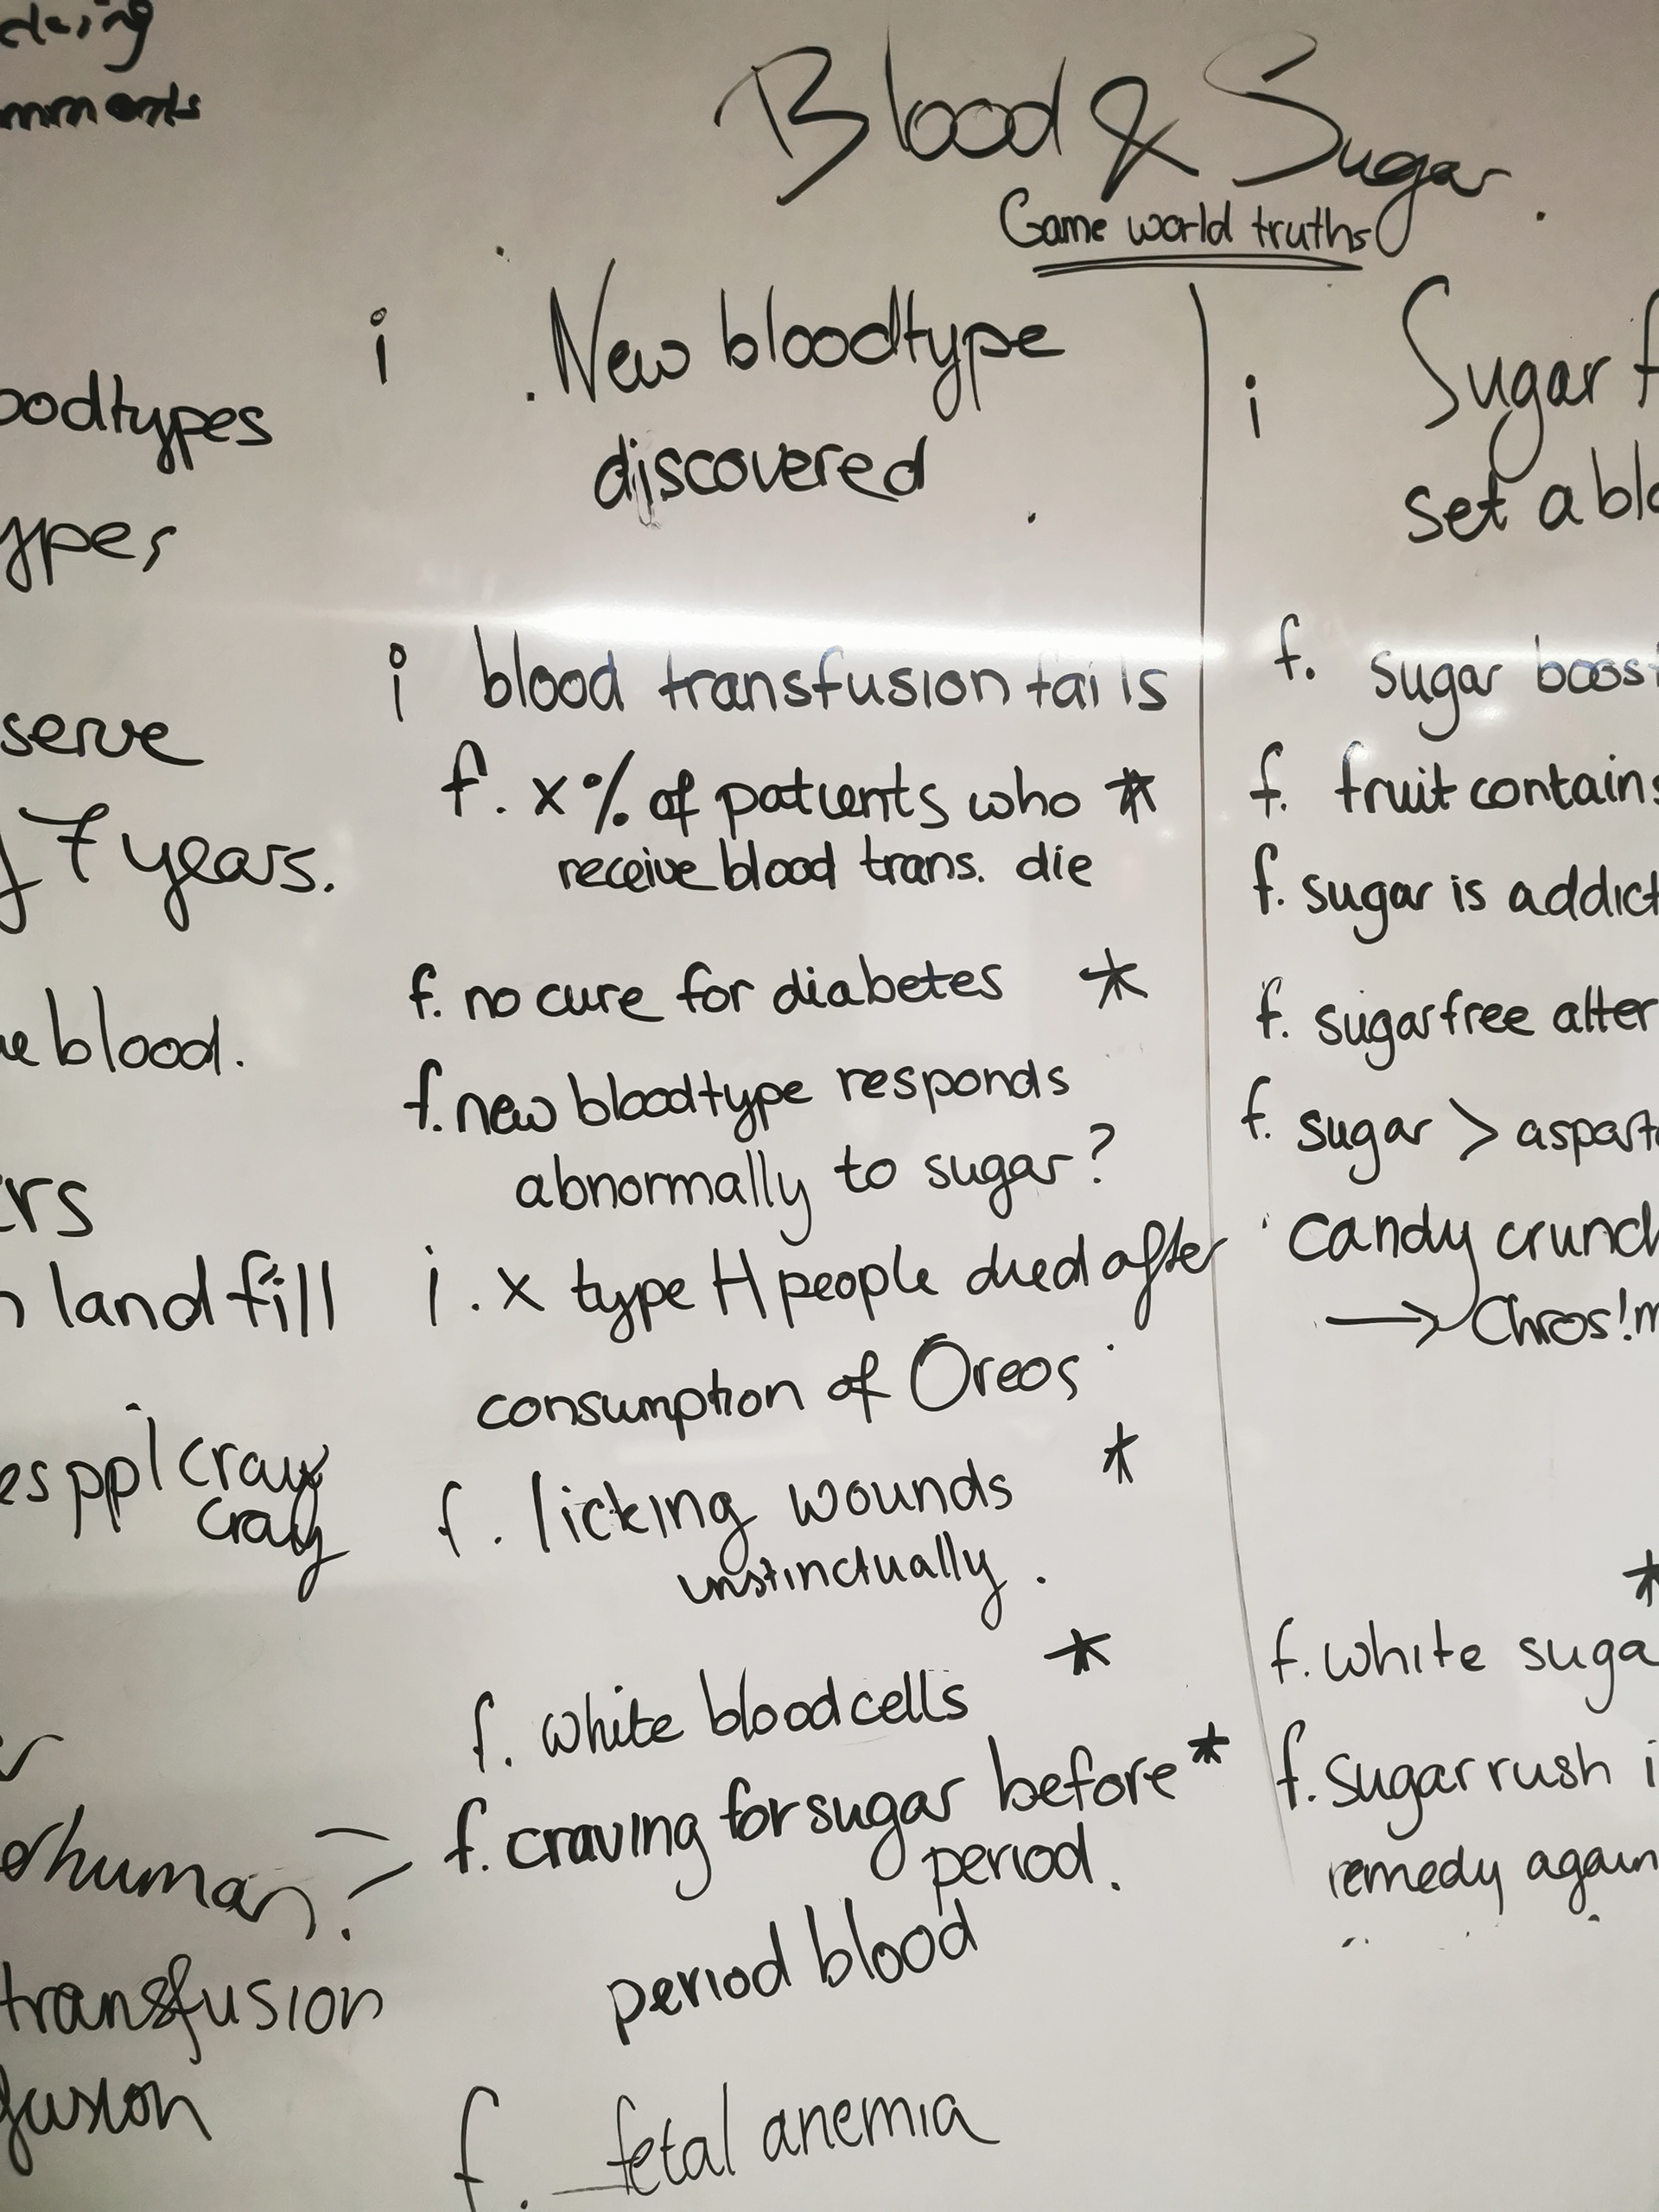 Blood & Sugar
Game world truths
oodtypes
serve
7 years.
blood.
land fill
ppl cray
cray
human?
transfusion
i . New bloodtype
discovered
i blood transfusion fails
f. x % of patients who *
receive blood trans. die
f. no cure for diabetes *
f. new bloodtype responds
abnormally to sugar?
i . x type H people died after
consumption of Oreos
f. licking wounds *
instinctually .
f. white bloodcells *
f. craving for sugar before *
period.
period blood
f. fetal anemia
i Sugar
set a
f. sugar boost
f. fruit contains
f. sugar is addict
f. sugarfree alter
f. sugar > aspart
candy crunch
→
*
f. white suga
f. sugar rush i
remedy again